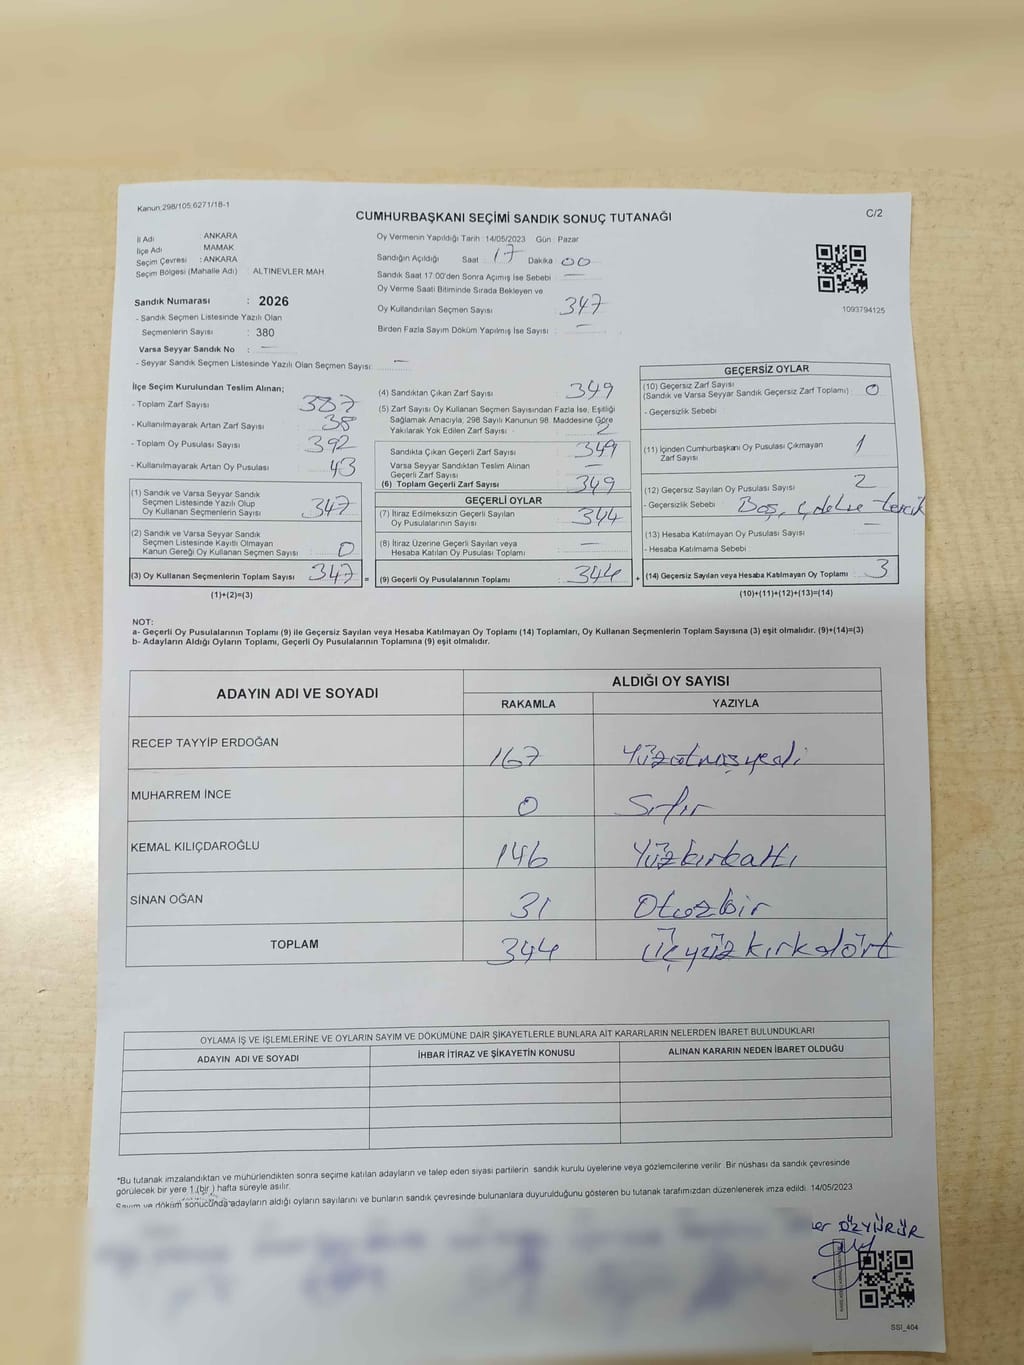 Kanun 298/105,6271/18-1
CUMHURBAŞKANI SEÇİMİ SANDIK SONUÇ TUTANAĞI
C/2
İl Adı ANKARA
İlçe Adı MAMAK
Seçim Çevresi : ANKARA
Seçim Bölgesi (Mahalle Adı) : ALTINEVLER MAH
Sandık Numarası : 2026
- Sandık Seçmen Listesinde Yazılı Olan
Seçmenlerin Sayısı : 380
Varsa Seyyar Sandık No : —
- Seyyar Sandık Seçmen Listesinde Yazılı Olan Seçmen Sayısı: —
Oy Vermenin Yapıldığı Tarih : 14/05/2023 Gün : Pazar
Sandığın Açıldığı Saat : 17 Dakika : 00
Sandık Saat 17:00'den Sonra Açılmış İse Sebebi : —
Oy Verme Saati Bitiminde Sırada Bekleyen ve
Oy Kullandırılan Seçmen Sayısı : 347
Birden Fazla Sayım Döküm Yapılmış İse Sayısı : —
1093794125
İlçe Seçim Kurulundan Teslim Alınan;
- Toplam Zarf Sayısı 387
- Kullanılmayarak Artan Zarf Sayısı : 38
- Toplam Oy Pusulası Sayısı : 392
- Kullanılmayarak Artan Oy Pusulası : 43
(1) Sandık ve Varsa Seyyar Sandık
Seçmen Listesinde Yazılı Olup
Oy Kullanan Seçmenlerin Sayısı : 347
(2) Sandık ve Varsa Seyyar Sandık
Seçmen Listesinde Kayıtlı Olmayan
Kanun Gereği Oy Kullanan Seçmen Sayısı : 0
(3) Oy Kullanan Seçmenlerin Toplam Sayısı : 347 =
(1)+(2)=(3)
(4) Sandıktan Çıkan Zarf Sayısı : 349
(5) Zarf Sayısı Oy Kullanan Seçmen Sayısından Fazla İse, Eşitliği
Sağlamak Amacıyla, 298 Sayılı Kanunun 98. Maddesine Göre
Yakılarak Yok Edilen Zarf Sayısı : 2
Sandıkta Çıkan Geçerli Zarf Sayısı : 349
Varsa Seyyar Sandıktan Teslim Alınan
Geçerli Zarf Sayısı : —
(6) Toplam Geçerli Zarf Sayısı : 349
GEÇERLİ OYLAR
(7) İtiraz Edilmeksizin Geçerli Sayılan
Oy Pusulalarının Sayısı : 344
(8) İtiraz Üzerine Geçerli Sayılan veya
Hesaba Katılan Oy Pusulası Toplamı : —
(9) Geçerli Oy Pusulalarının Toplamı : 344 +
GEÇERSİZ OYLAR
(10) Geçersiz Zarf Sayısı
(Sandık ve Varsa Seyyar Sandık Geçersiz Zarf Toplamı) : 0
- Geçersizlik Sebebi :
(11) İçinden Cumhurbaşkanı Oy Pusulası Çıkmayan
Zarf Sayısı : 1
(12) Geçersiz Sayılan Oy Pusulası Sayısı : 2
- Geçersizlik Sebebi : Boş, tercih
(13) Hesaba Katılmayan Oy Pusulası Sayısı : —
- Hesaba Katılmama Sebebi :
(14) Geçersiz Sayılan veya Hesaba Katılmayan Oy Toplamı : 3
(10)+(11)+(12)+(13)=(14)
NOT:
a- Geçerli Oy Pusulalarının Toplamı (9) ile Geçersiz Sayılan veya Hesaba Katılmayan Oy Toplamı (14) Toplamları, Oy Kullanan Seçmenlerin Toplam Sayısına (3) eşit olmalıdır. (9)+(14)=(3)
b- Adayların Aldığı Oyların Toplamı, Geçerli Oy Pusulalarının Toplamına (9) eşit olmalıdır.
ADAYIN ADI VE SOYADI
ALDIĞI OY SAYISI
RAKAMLA YAZIYLA
RECEP TAYYİP ERDOĞAN 167 Yüzatmışyedi
MUHARREM İNCE 0 Sıfır
KEMAL KILIÇDAROĞLU 146 Yüzkırkaltı
SİNAN OĞAN 31 Otuzbir
TOPLAM 344 Üçyüzkırkdört
OYLAMA İŞ VE İŞLEMLERİNE VE OYLARIN SAYIM VE DÖKÜMÜNE DAİR ŞİKAYETLERLE BUNLARA AİT KARARLARIN NELERDEN İBARET BULUNDUKLARI
ADAYIN ADI VE SOYADI İHBAR İTİRAZ VE ŞİKAYETİN KONUSU ALINAN KARARIN NEDEN İBARET OLDUĞU
*Bu tutanak imzalandıktan ve mühürlendikten sonra seçime katılan adayların ve talep eden siyasi partilerin sandık kurulu üyelerine veya gözlemcilerine verilir. Bir nüshası da sandık çevresinde
görülecek bir yere 1 (bir) hafta süreyle asılır.
Sayım ve döküm sonucunda adayların aldığı oyların sayılarını ve bunların sandık çevresinde bulunanlara duyurulduğunu gösteren bu tutanak tarafımızdan düzenlenerek imza edildi. 14/05/2023
er ÖZYÜRÜR
SSI_404